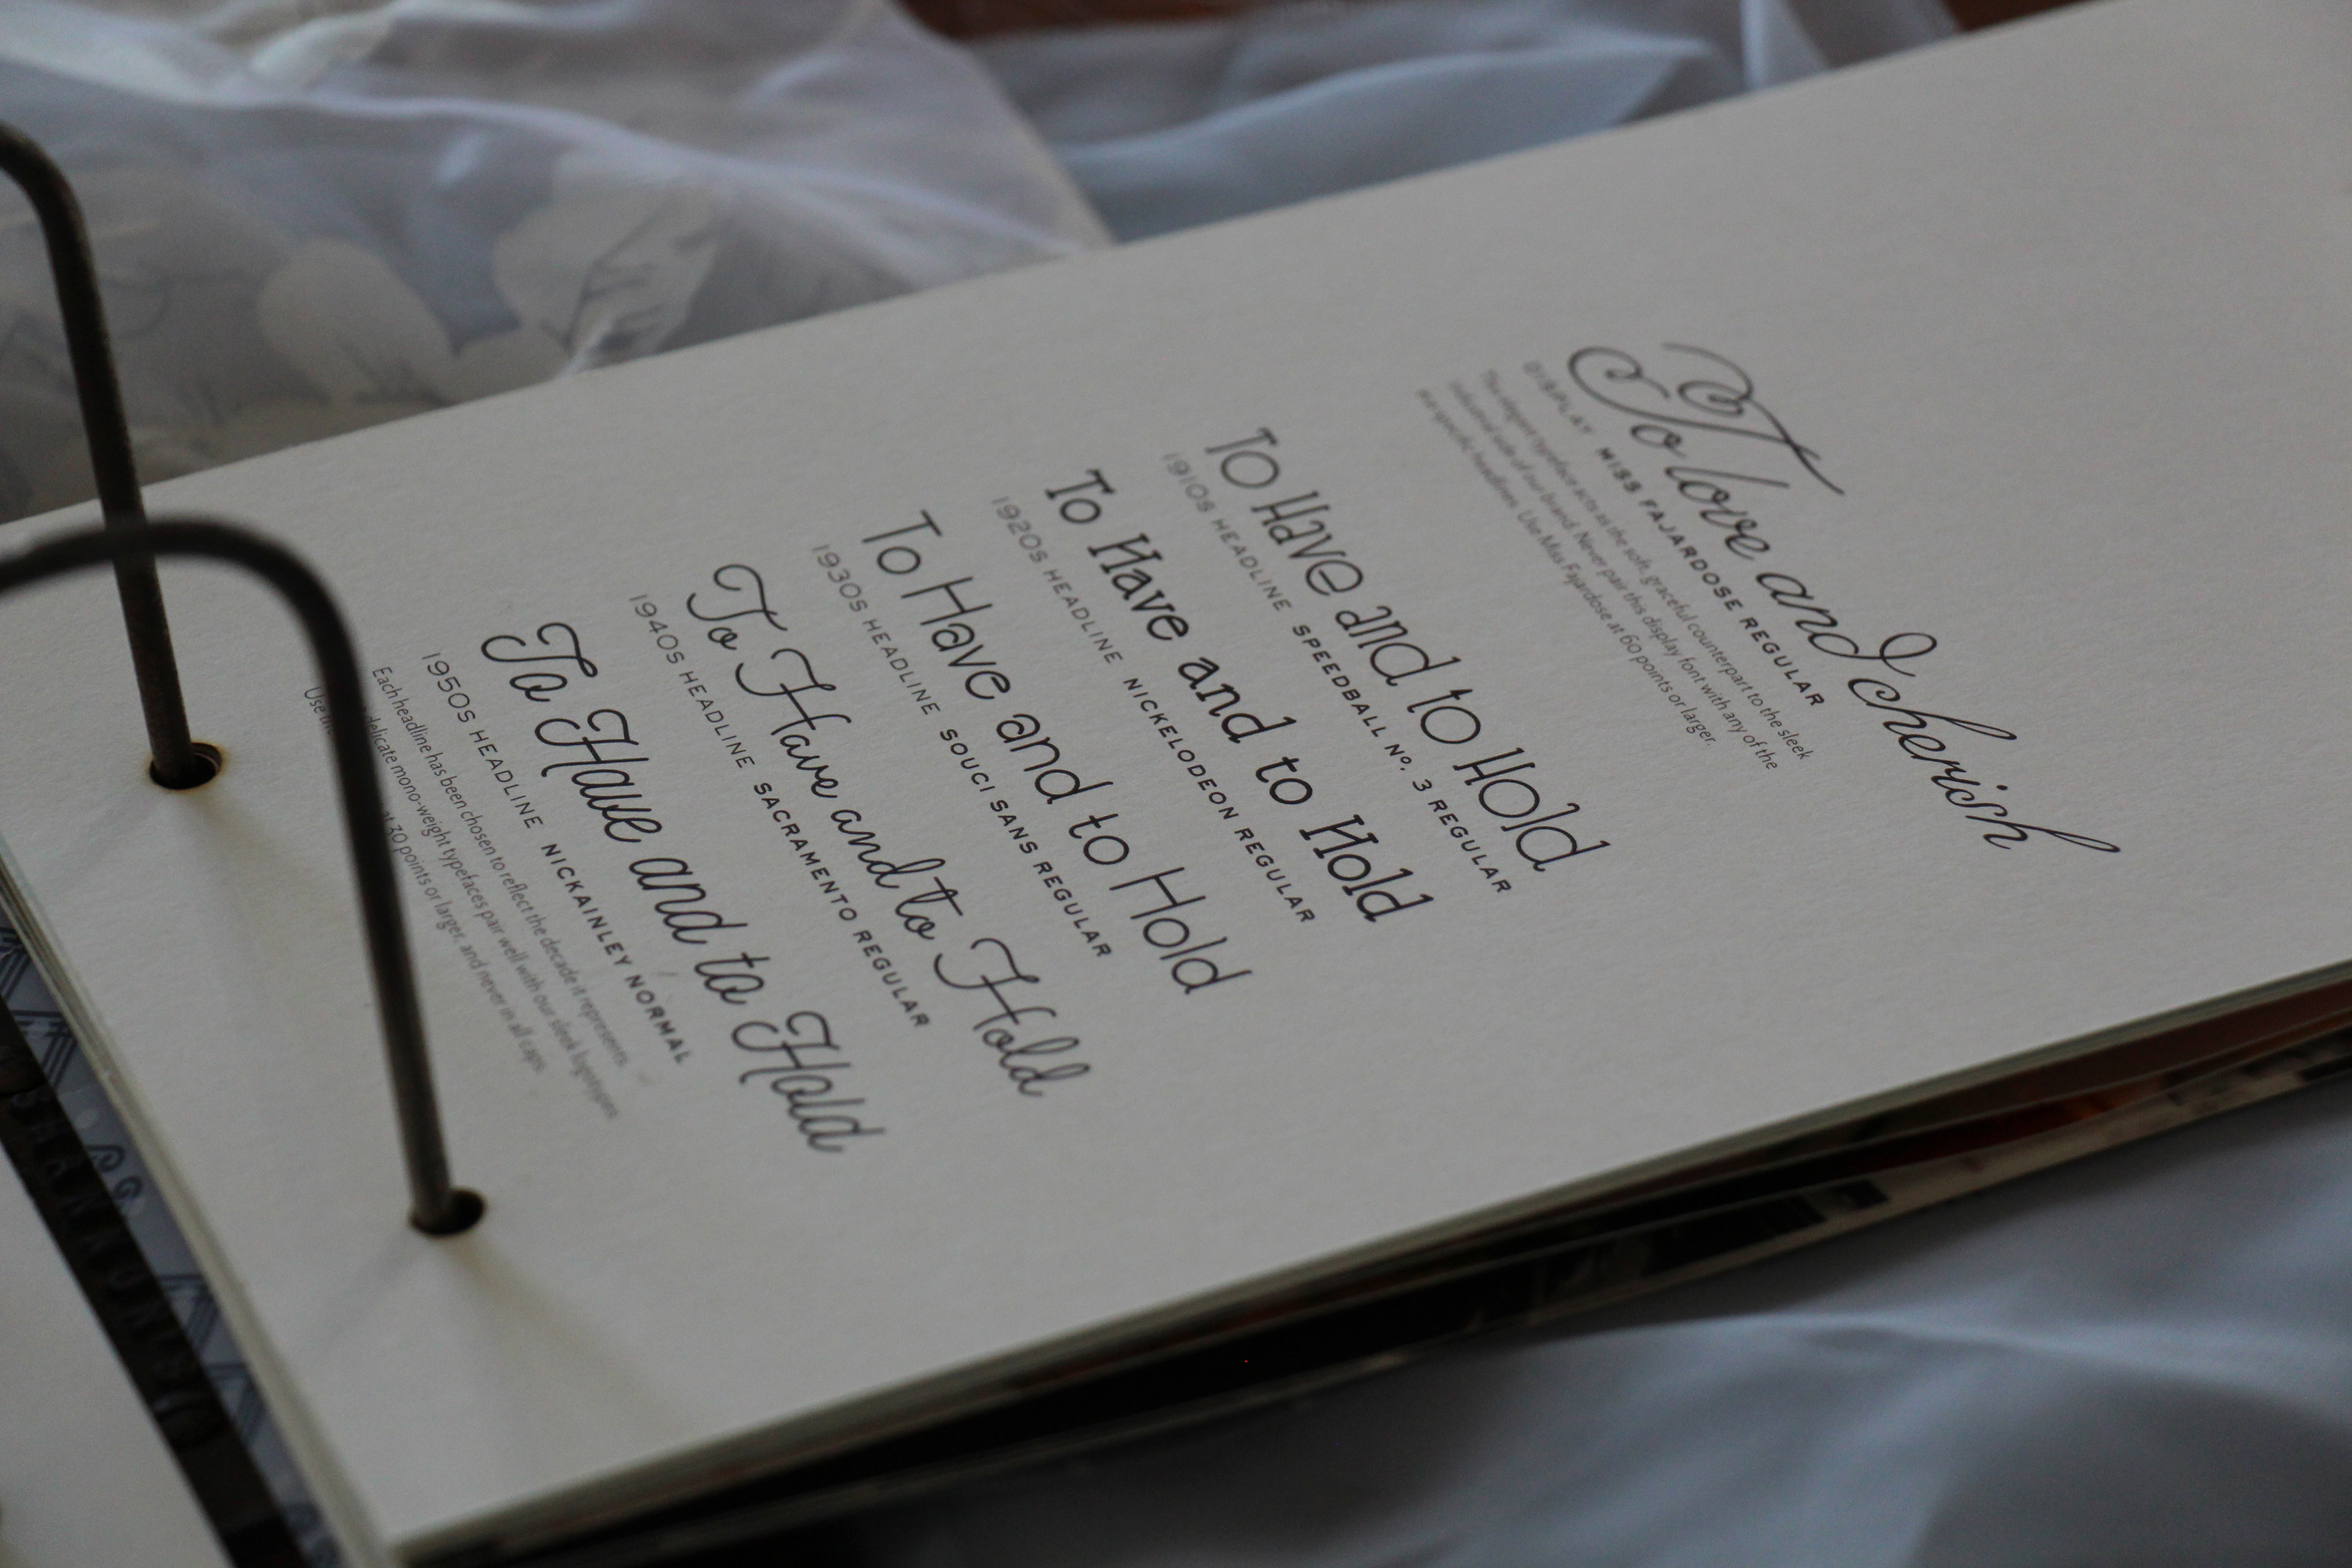 To love and cherish
DISPLAY MISS FAJARDOSE REGULAR
This elegant typeface acts as the soft, graceful counterpart to the sleek
industrial side of our brand. Never pair this display font with any of the
era-specific headlines. Use Miss Fajardose at 60 points or larger.
To Have and to Hold
1910S HEADLINE SPEEDBALL Nº. 3 REGULAR
To Have and to Hold
1920S HEADLINE NICKELODEON REGULAR
To Have and to Hold
1930S HEADLINE SOUCI SANS REGULAR
To Have and to Hold
1940S HEADLINE SACRAMENTO REGULAR
To Have and to Hold
1950S HEADLINE NICKAINLEY NORMAL
Each headline has been chosen to reflect the decade it represents.
delicate mono-weight typefaces pair well with our sleek logotypes.
Use at 30 points or larger, and never in all caps.